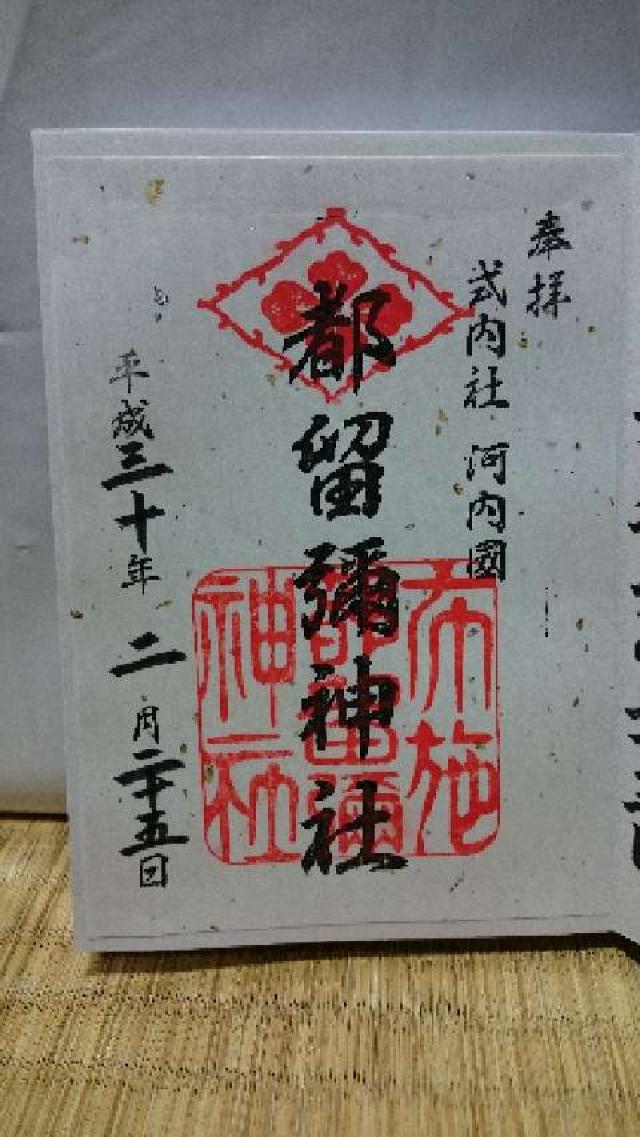 奉拝
式内社 河内國
都留彌神社
布施
都留彌
神社
平成三十年 二月二十五日